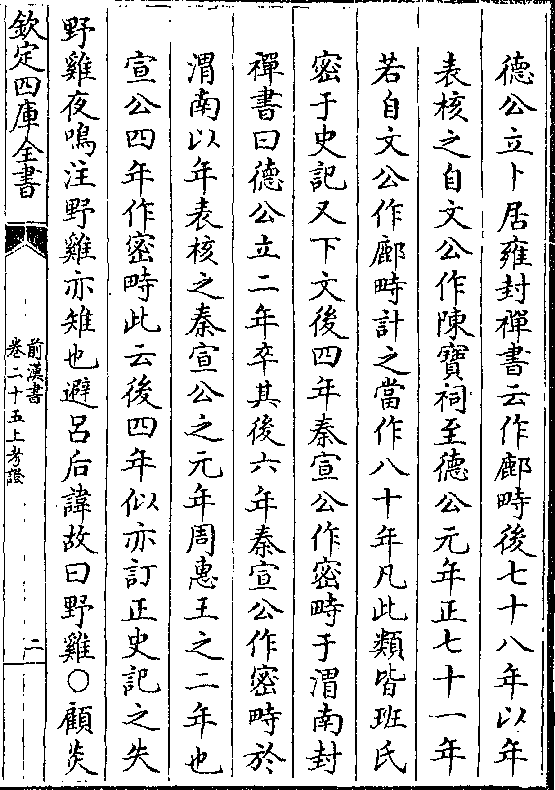 德公立卜居雍封禪書云作鄜畤後七十八年以年
表核之自文公作陳寶祠至德公元年正七十一年
若自文公作鄜畤計之當作八十年凡此類皆班氏
密于史記又下文後四年秦宣公作密畤于渭南封
禪書曰德公立二年卒其後六年秦宣公作密畤於
渭南以年表核之秦宣公之元年周惠王之二年也
宣公四年作密畤此云後四年似亦訂正史記之失
野雞夜鳴注野雞亦雉也避呂后諱故曰野雞○顧炎
欽定四庫全書
前漢書
卷二十五上考證
二